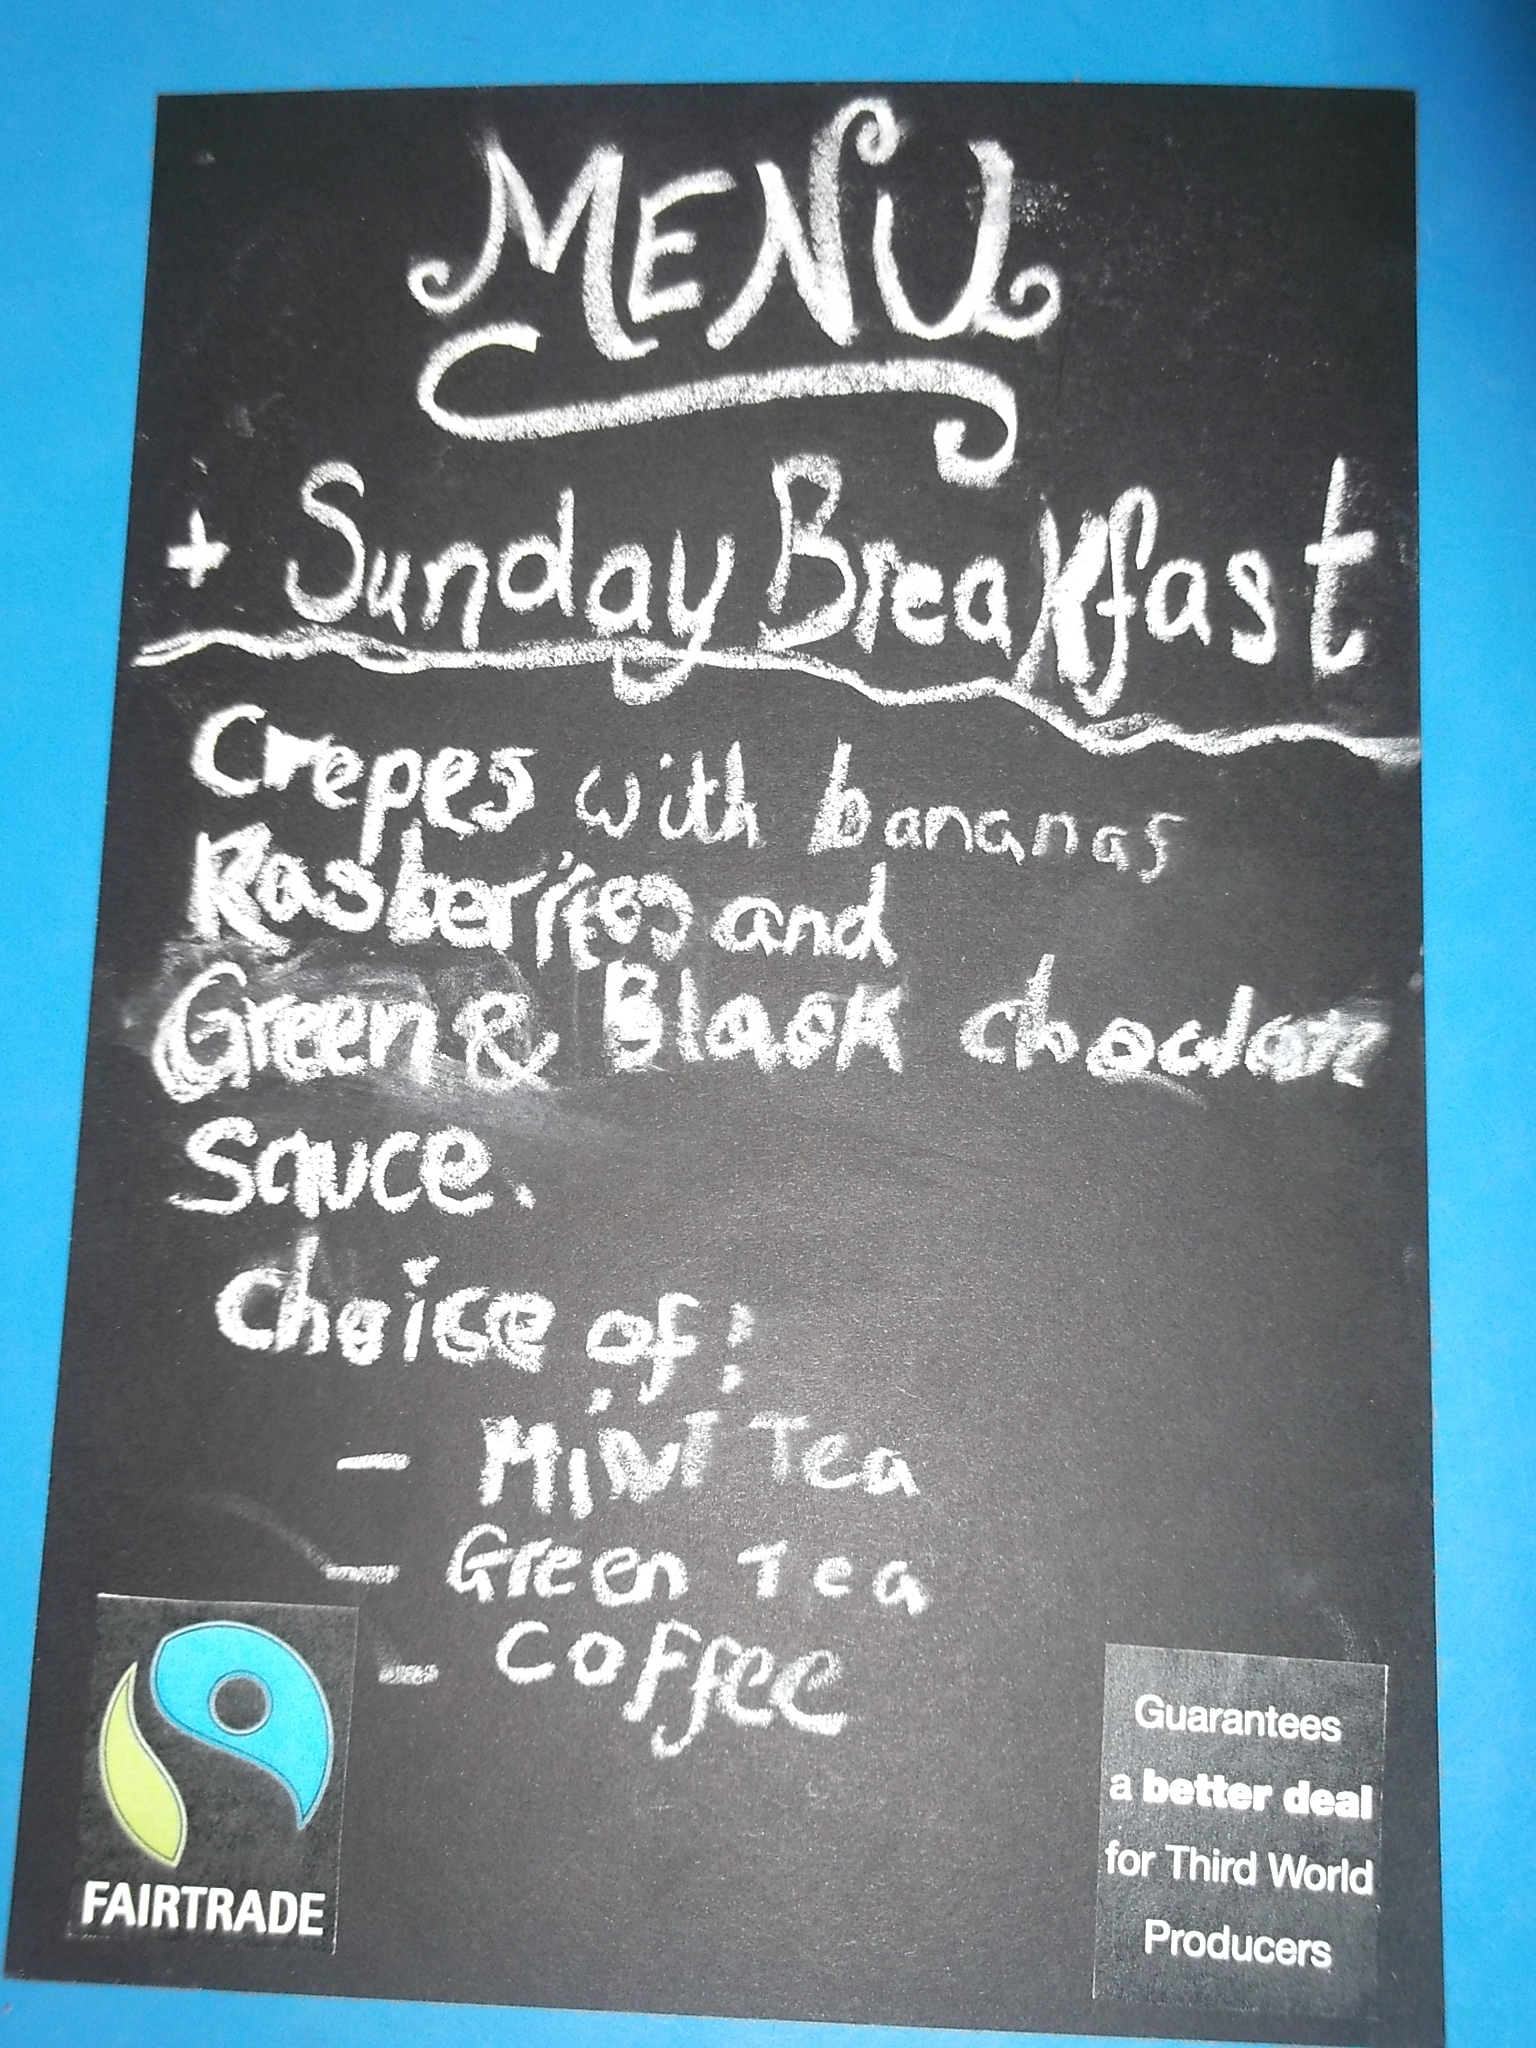 MENU
+ Sunday Breakfast
Crepes with bananas
Rasberries and
Green & Black
sauce.
choice of:
- Mint Tea
- Green Tea
- Coffee
FAIRTRADE
Guarantees
a better deal
for Third World
Producers